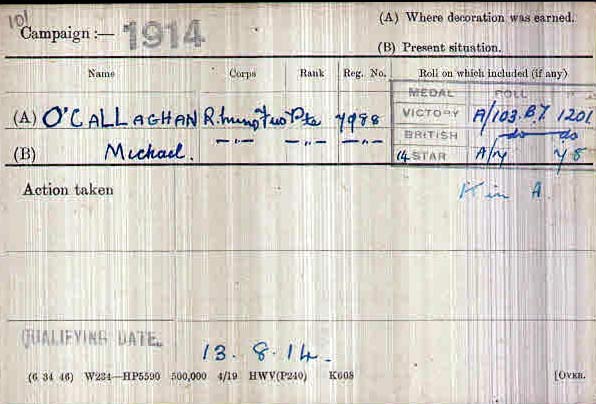 101
(A) Where decoration was earned.
Campaign :— 1914
(B) Present situation.
Name Corps Rank Reg. No. Roll on which included (if any)
MEDAL ROLL
(A) O'CALLAGHAN R. Pte 7988 VICTORY A/103.B7 1201
BRITISH do do
(B) Michael. —"— —"— —"— 14 STAR A/7 78
Action taken K in A
QUALIFYING DATE.
13. 8. 14.
(6 34 46) W234—HP5590 500,000 4/19 HWV(P240) K608 [OVER.